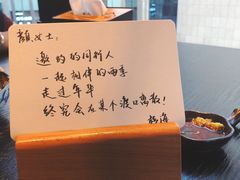 颜女士:
邀约的同行人
一起相伴的雨季
走过年华
终究会在某个渡口离散!